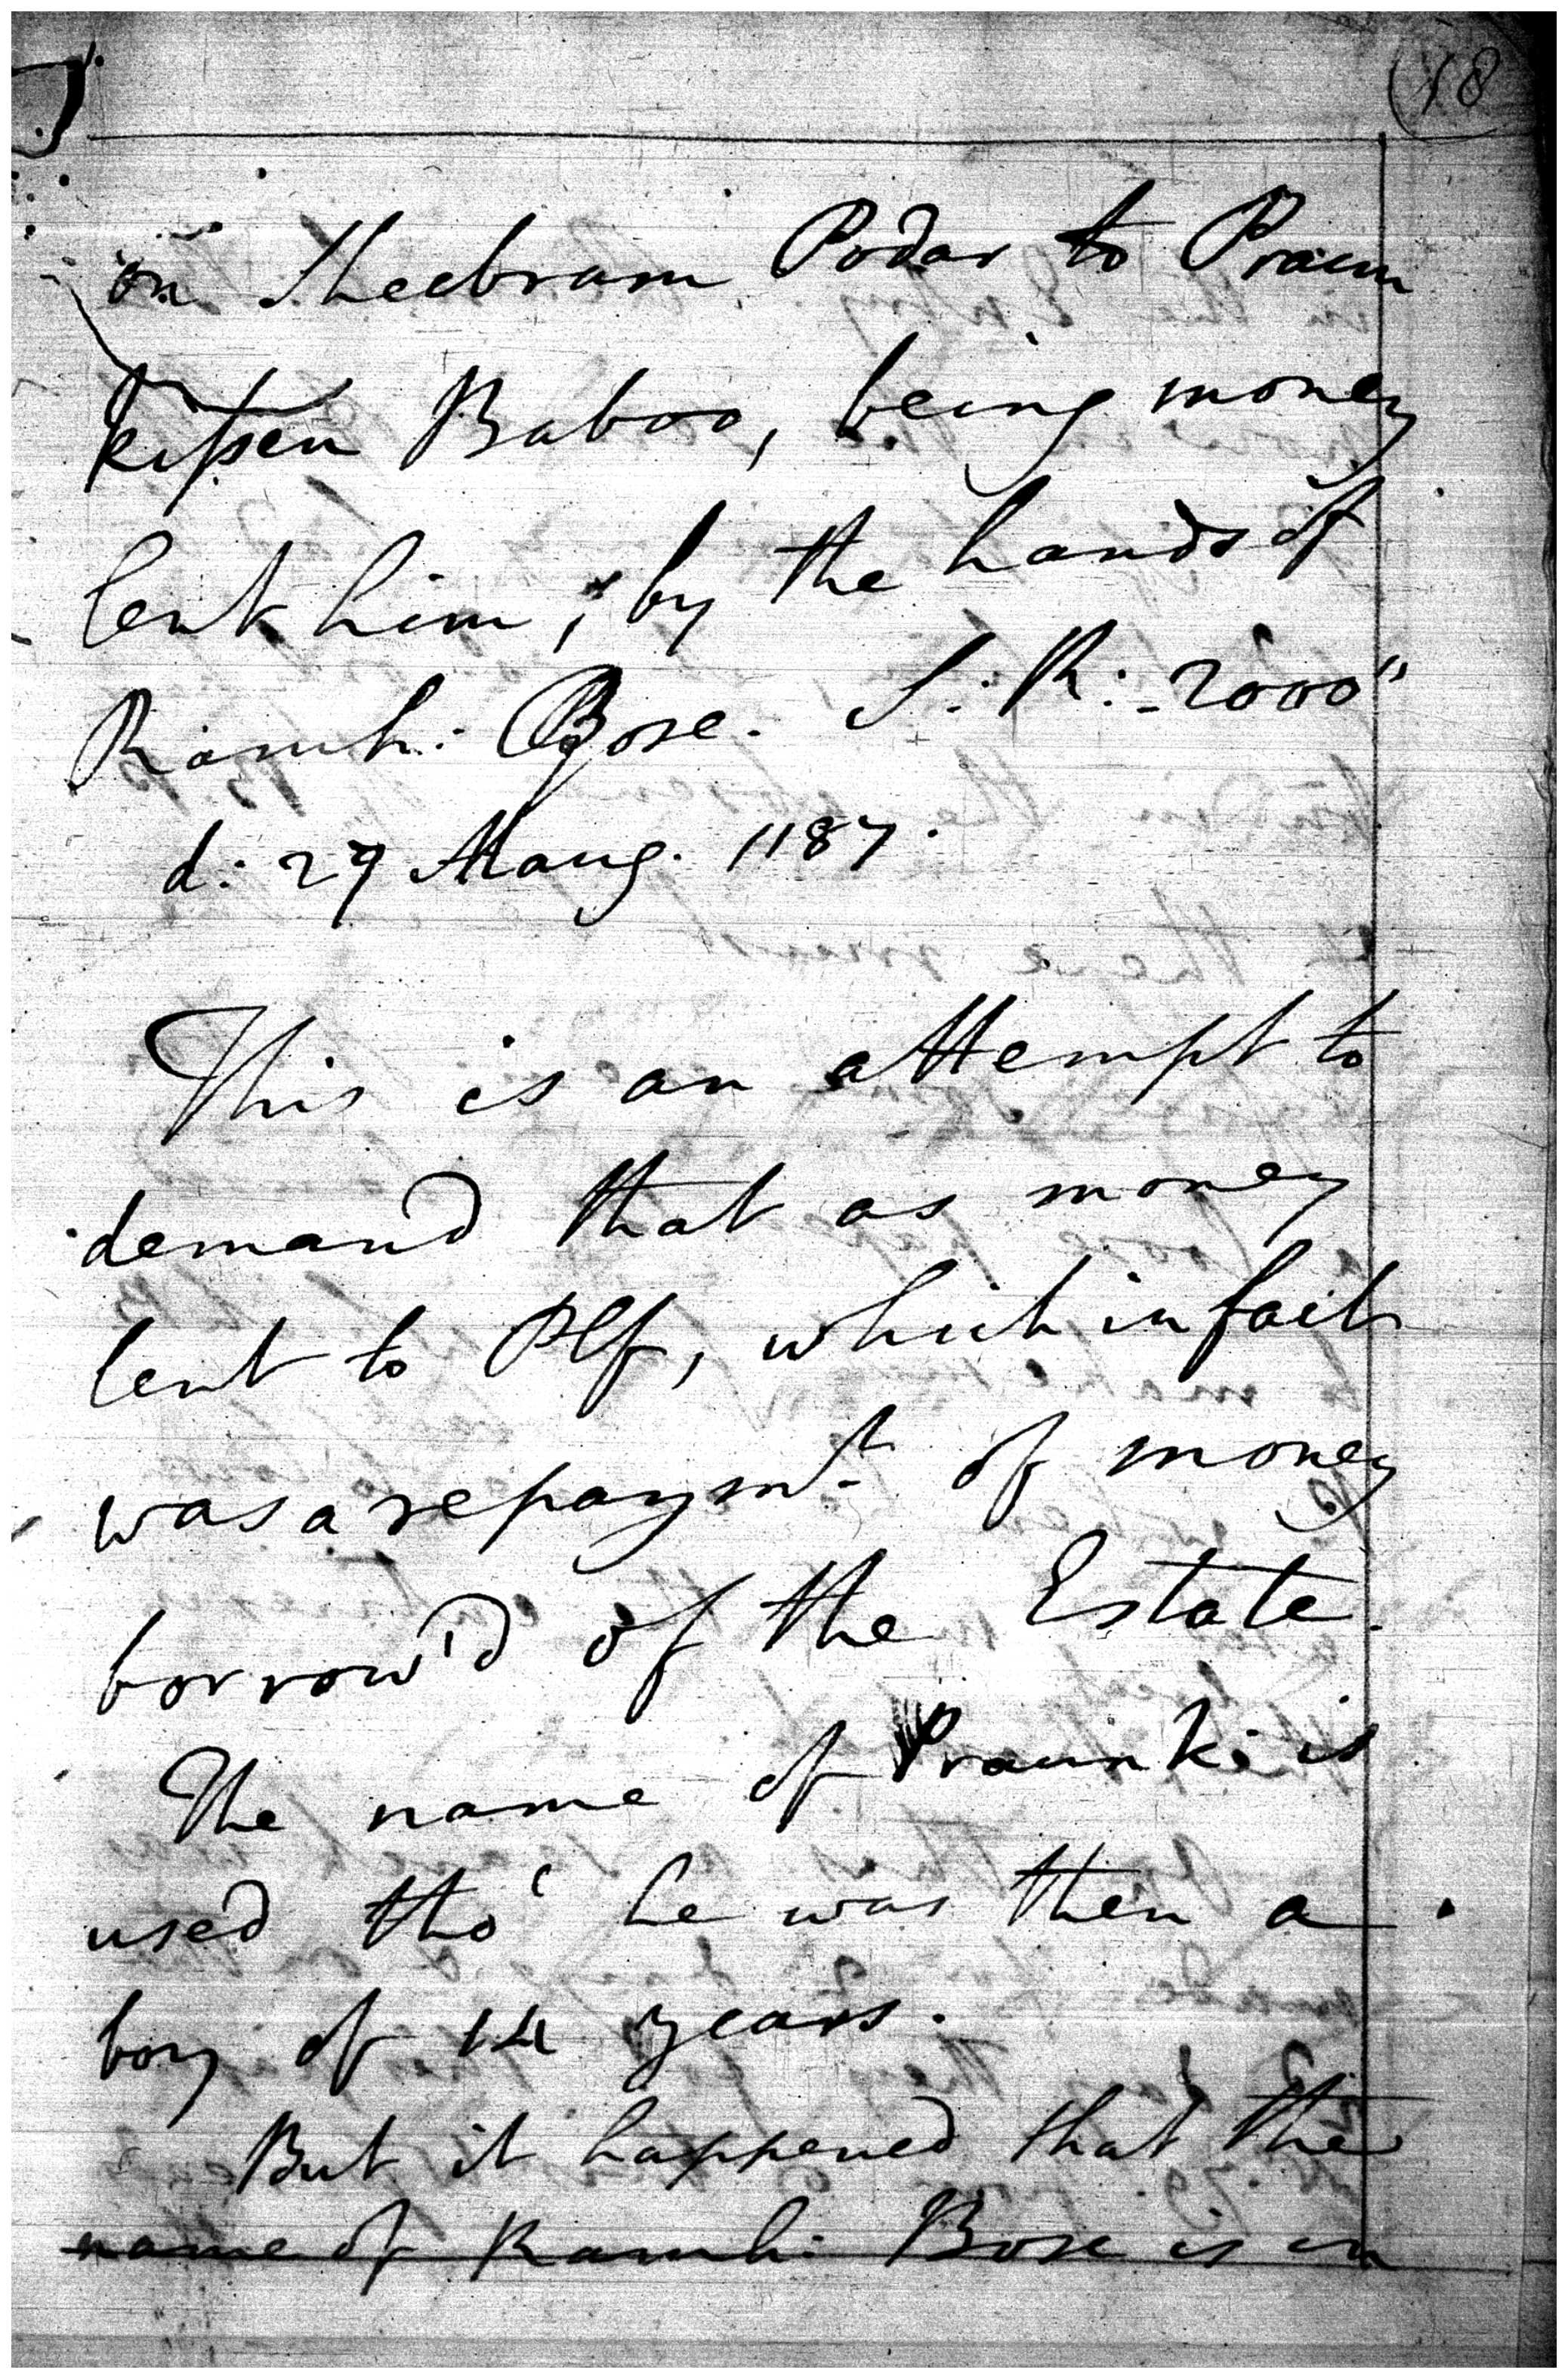 (18
on Sheebram Podar to Praun
kissen Baboo, being money
lent him, by the hands of
Ramh: Bose. S: R: 2000"
d: 29 Maug. 1187.
This is an attempt to
demand that as money
lent to Plf, which in fact
was a repaymt. of money
borrow'd of the Estate.
The name of Praun K: is
used tho' he was then a
boy of 14 years.
But it happened that the
name of Ramh: Bose is in